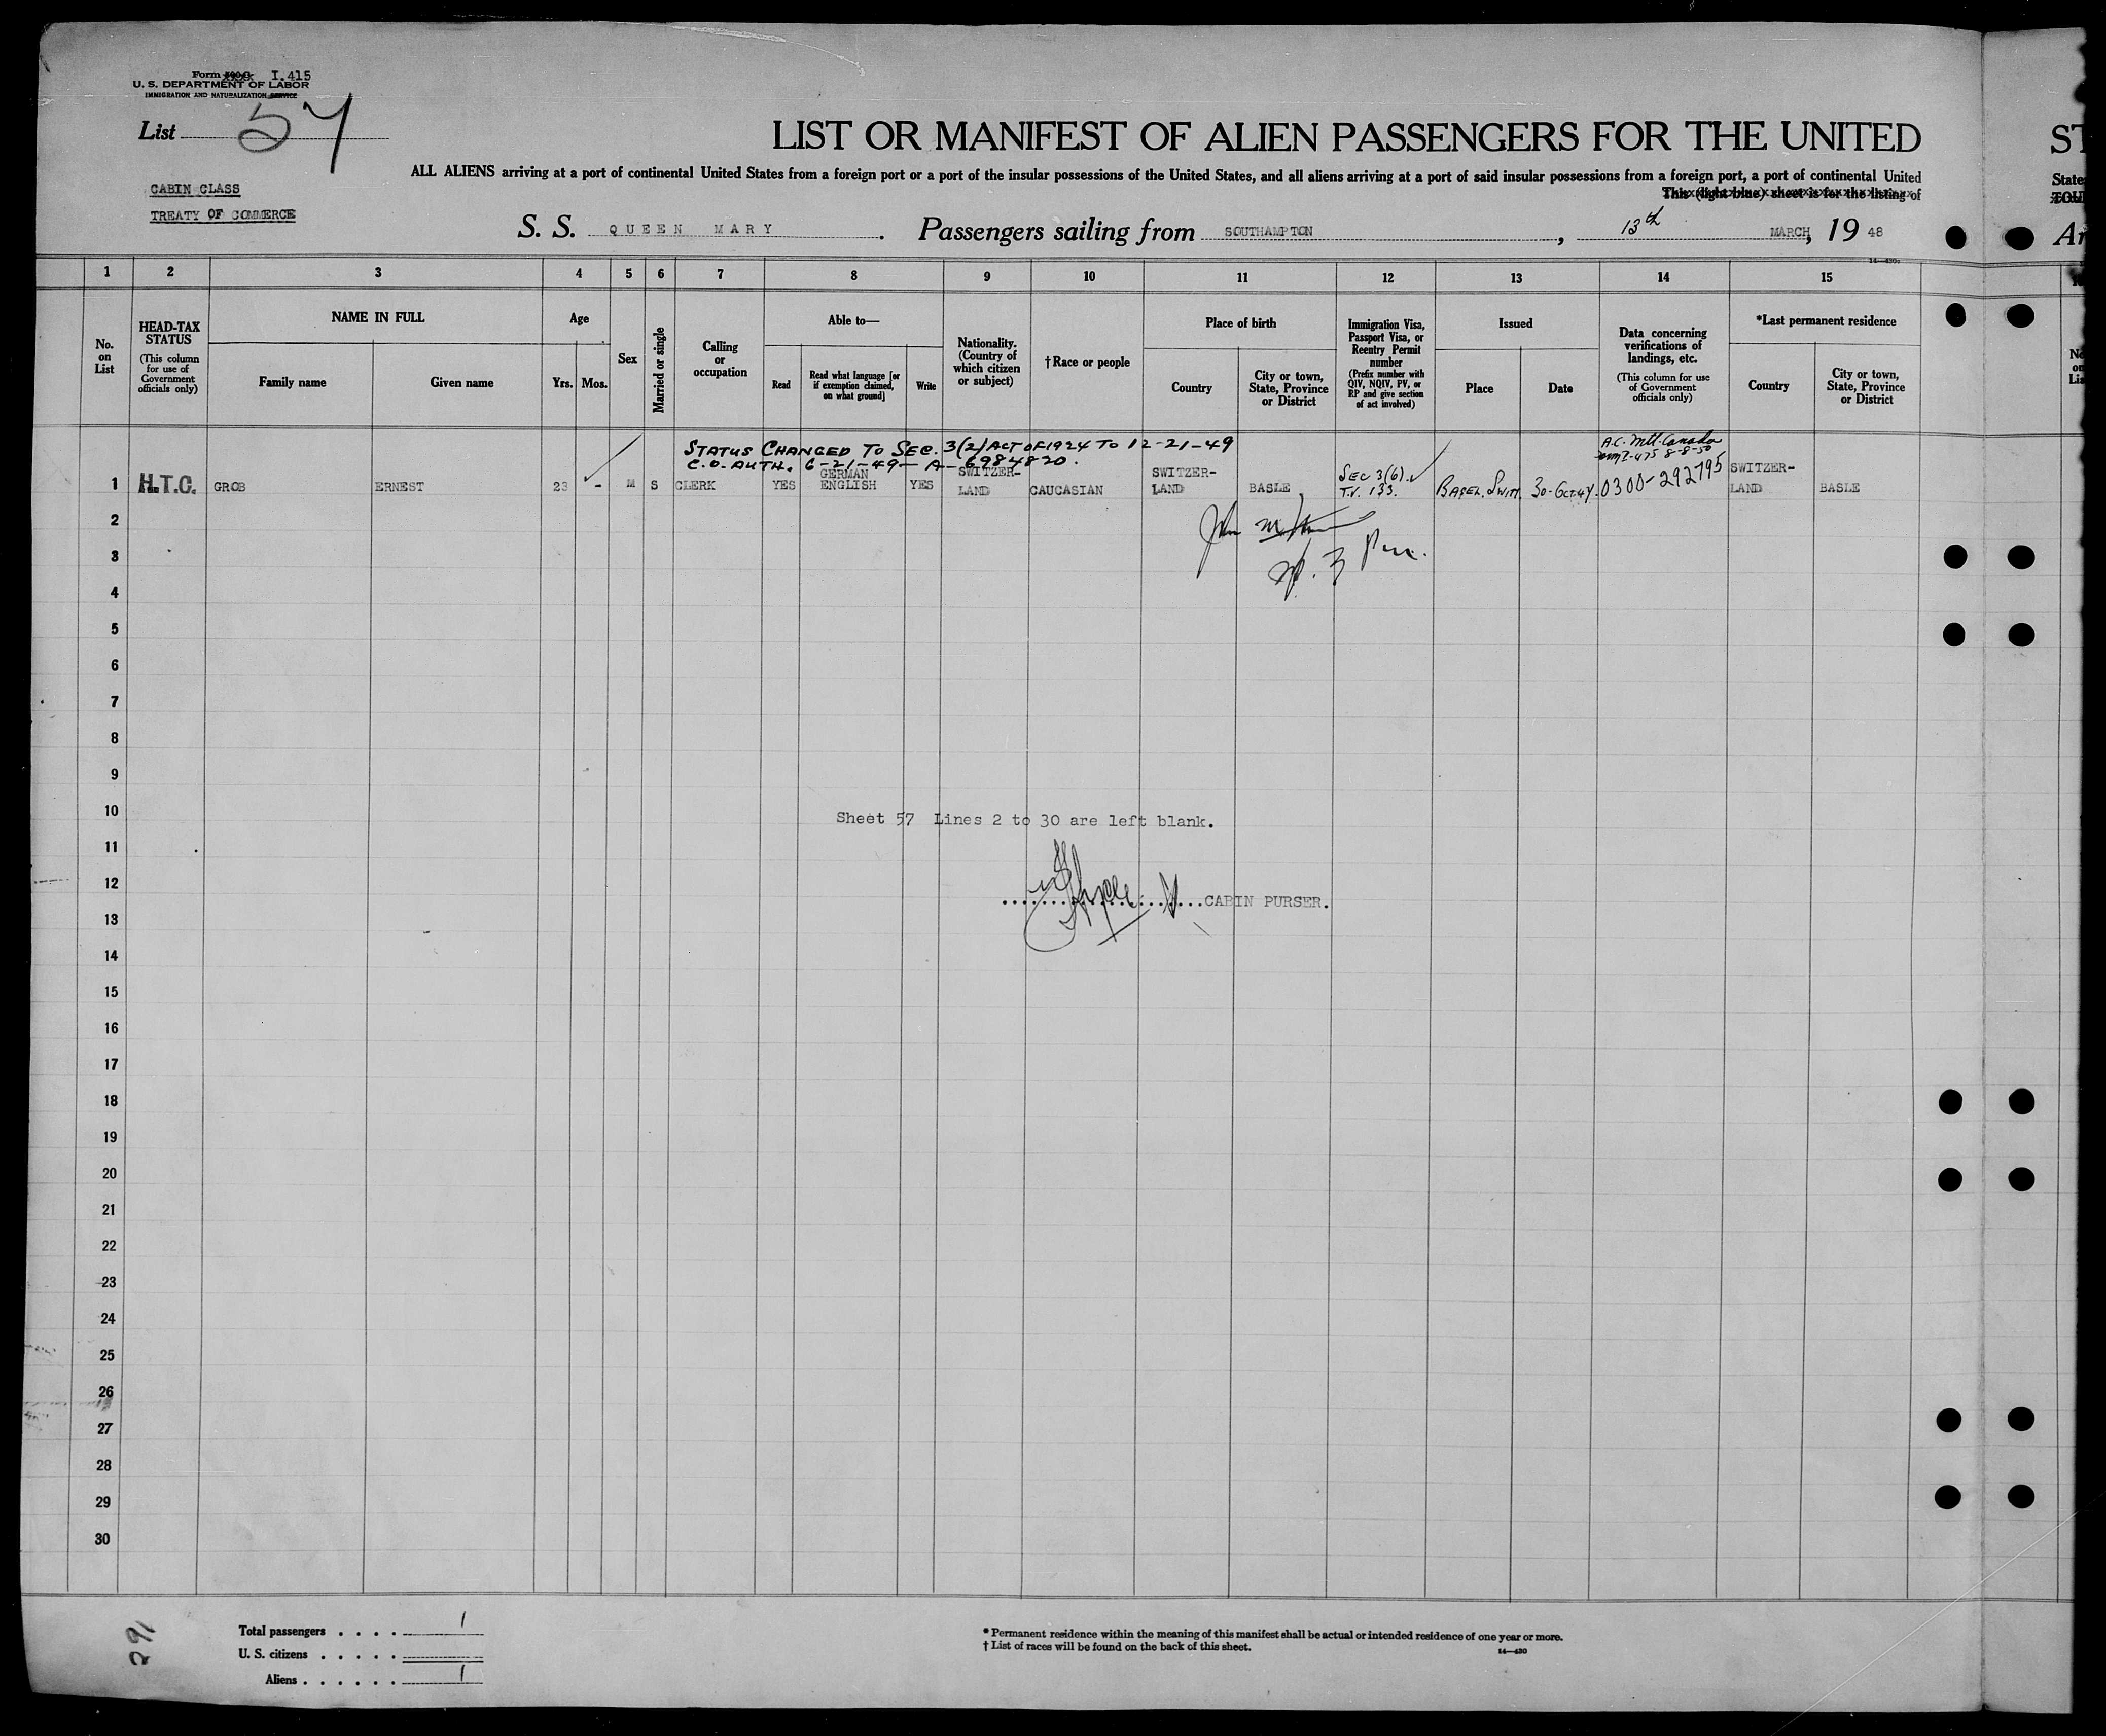 Form I.415
U. S. DEPARTMENT OF LABOR
IMMIGRATION AND NATURALIZATION SERVICE
List 57
LIST OR MANIFEST OF ALIEN PASSENGERS FOR THE UNITED
ST
ALL ALIENS arriving at a port of continental United States from a foreign port or a port of the insular possessions of the United States, and all aliens arriving at a port of said insular possessions from a foreign port, a port of continental United
State
CABIN CLASS
This (light blue) sheet is for the listing of
TREATY OF COMMERCE
S. S. QUEEN MARY. Passengers sailing from SOUTHAMPTON, 13th MARCH, 19 48
1 2 3 4 5 6 7 8 9 10 11 12 13 14 15
No. on List
HEAD-TAX STATUS
(This column for use of Government officials only)
NAME IN FULL
Family name
Given name
Age
Yrs. Mos.
Sex
Married or single
Calling or occupation
Able to—
Read
Read what language [or if exemption claimed, on what ground]
Write
Nationality. (Country of which citizen or subject)
†Race or people
Place of birth
Country
City or town, State, Province or District
Immigration Visa, Passport Visa, or Reentry Permit number
(Prefix number with QIV, NQIV, PV, or RP and give section of act involved)
Issued
Place
Date
Data concerning verifications of landings, etc.
(This column for use of Government officials only)
*Last permanent residence
Country
City or town, State, Province or District
STATUS CHANGED TO SEC. 3(2) ACT OF 1924 TO 12-21-49
C.O. AUTH. 6-21-49- A-6984820.
A.C. Mtl. Canada
8-8-50
1 H.T.C. GROB ERNEST 23 - M S CLERK YES GERMAN ENGLISH YES SWITZER-LAND CAUCASIAN SWITZER-LAND BASLE SEC 3(6). T.V. 133. BASEL. SWITZ. 30-Oct 47. 0300-292795 SWITZER-LAND BASLE
2
John
3
4
5
6
7
8
9
10
Sheet 57 Lines 2 to 30 are left blank.
11
12
CABIN PURSER.
13
14
15
16
17
18
19
20
21
22
23
24
25
26
27
28
29
30
291
Total passengers . . . . 1
U. S. citizens . . . . .
Aliens . . . . . . 1
* Permanent residence within the meaning of this manifest shall be actual or intended residence of one year or more.
† List of races will be found on the back of this sheet.
14—430